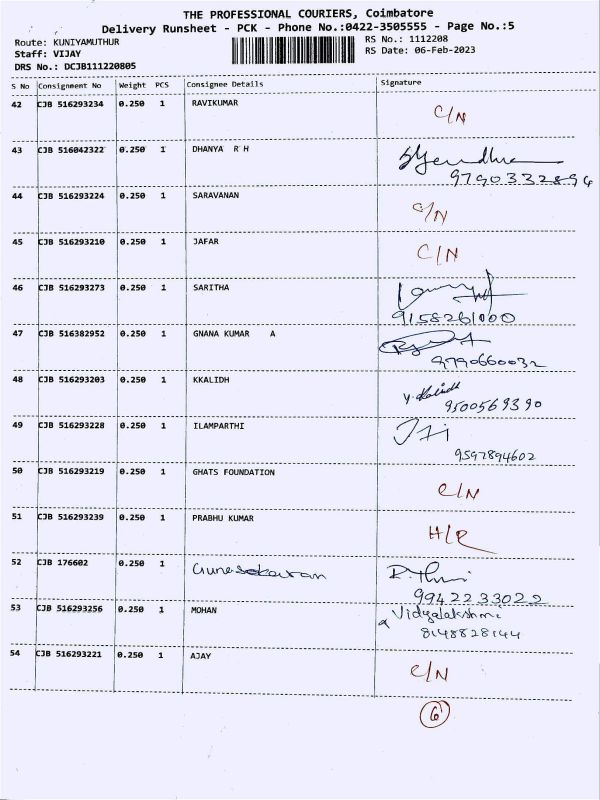 THE PROFESSIONAL COURIERS, Coimbatore
Delivery Runsheet - PCK - Phone No.:0422-3505555 - Page No.:5
Route: KUNIYAMUTHUR
RS No.: 1112208
Staff: VIJAY
RS Date: 06-Feb-2023
DRS No.: DCJB111220805
S No Consignment No Weight PCS Consignee Details Signature
42 CJB 516293234 0.250 1 RAVIKUMAR C/N
43 CJB 516042322 0.250 1 DHANYA R H
9790332894
44 CJB 516293224 0.250 1 SARAVANAN C/N
45 CJB 516293210 0.250 1 JAFAR C/N
46 CJB 516293273 0.250 1 SARITHA
9158261000
47 CJB 516382952 0.250 1 GNANA KUMAR A
9790660032
48 CJB 516293203 0.250 1 KKALIDH Y. Kalidh
9500569390
49 CJB 516293228 0.250 1 ILAMPARTHI
9597894602
50 CJB 516293219 0.250 1 GHATS FOUNDATION C/N
51 CJB 516293239 0.250 1 PRABHU KUMAR H/R
52 CJB 176602 0.250 1 Gunesekaran
9942233022
53 CJB 516293256 0.250 1 MOHAN Vidyalakshmi
8148828144
54 CJB 516293221 0.250 1 AJAY C/N
6